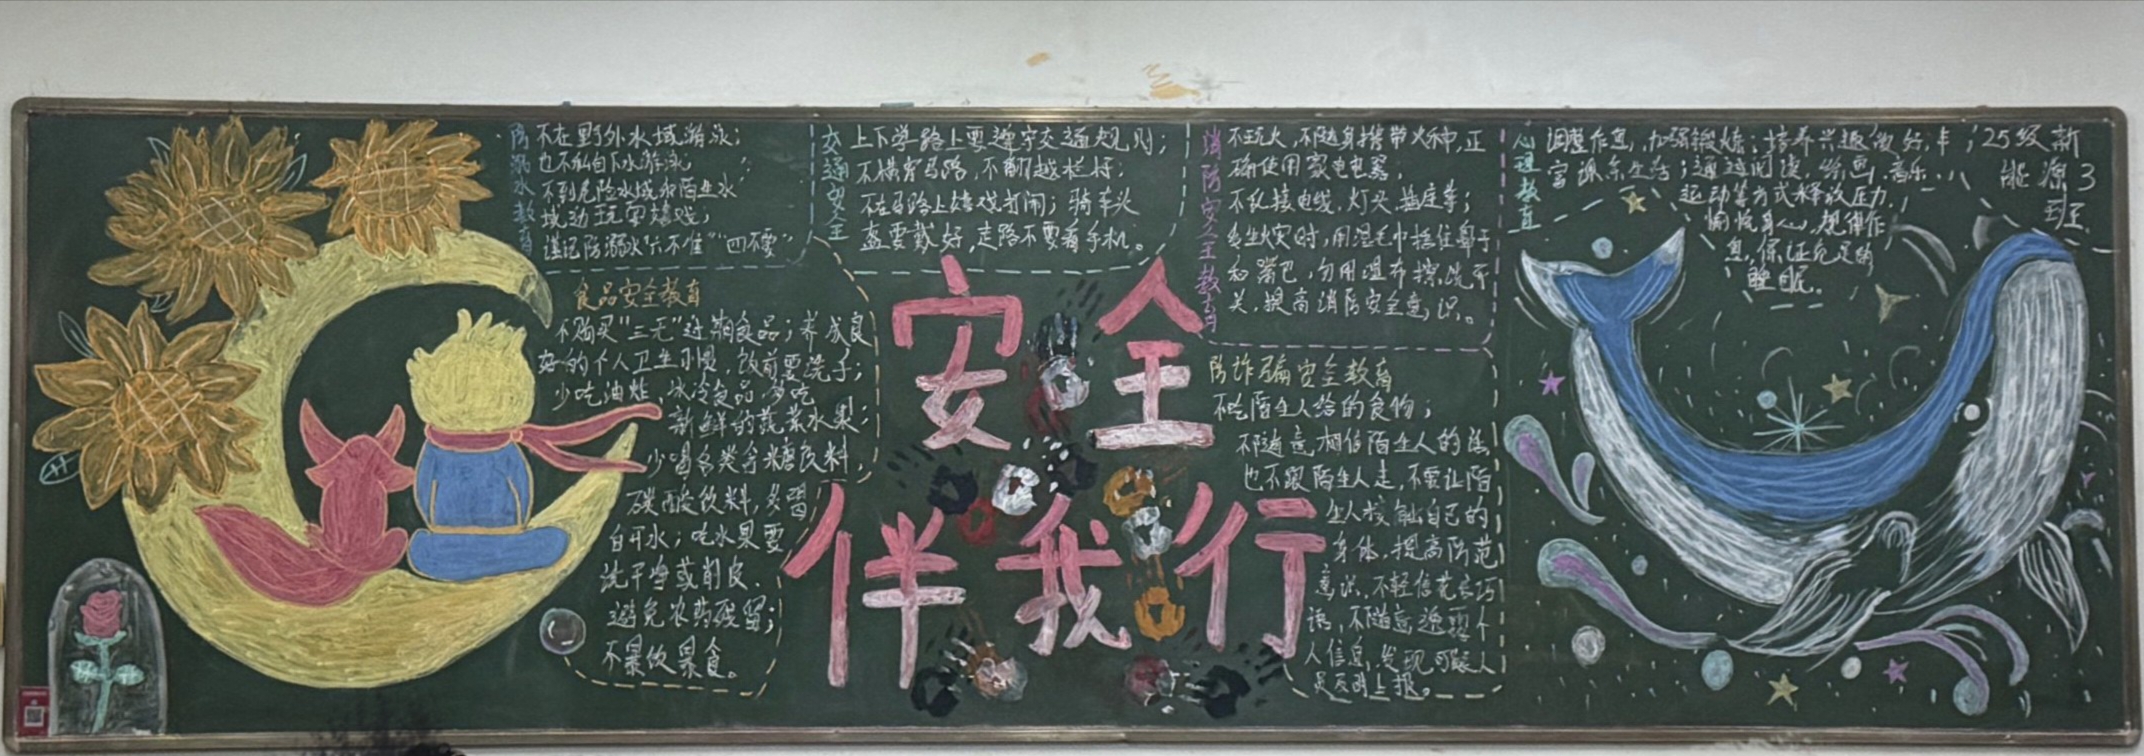 防溺水教育
不在野外水域游泳；
也不私自下水游泳；
不到危险水域和陌生水
域边玩耍嬉戏；
谨记防溺水“六不准”“四不要”
食品安全教育
不购买“三无”过期食品；养成良
好的个人卫生习惯，饭前要洗手；
少吃油炸，冰冷食品，多吃
新鲜的蔬菜水果；
少喝各类含糖饮料，
碳酸饮料，多喝
白开水；吃水果要
洗干净或削皮，
避免农药残留；
不暴饮暴食。
交通安全
上下学路上要遵守交通规则；
不横穿马路，不翻越栏杆；
不在马路上嬉戏打闹；骑车头
盔要戴好，走路不要看手机。
安全
伴我行
消防安全教育
不玩火，不随身携带火种，正
确使用家电电器；
不乱接电线，灯头，插座等；
发生火灾时，用湿毛巾捂住鼻子
和嘴巴，勿用湿布擦洗开
关，提高消防安全意识。
防诈骗安全教育
不吃陌生人给的食物；
不随意相信陌生人的话
也不跟陌生人走，不要让陌
生人接触自己的
身体，提高防范
意识，不轻信花言巧
语，不随意透露个
人信息，发现可疑人
员及时上报。
心理教育
调整作息，加强锻炼；培养兴趣
富课余生活；通过阅读，绘画，音乐、
运动等方式释放压力，
愉悦身心，规律作
息，保证充足的
睡眠。
25级新
能源3
班